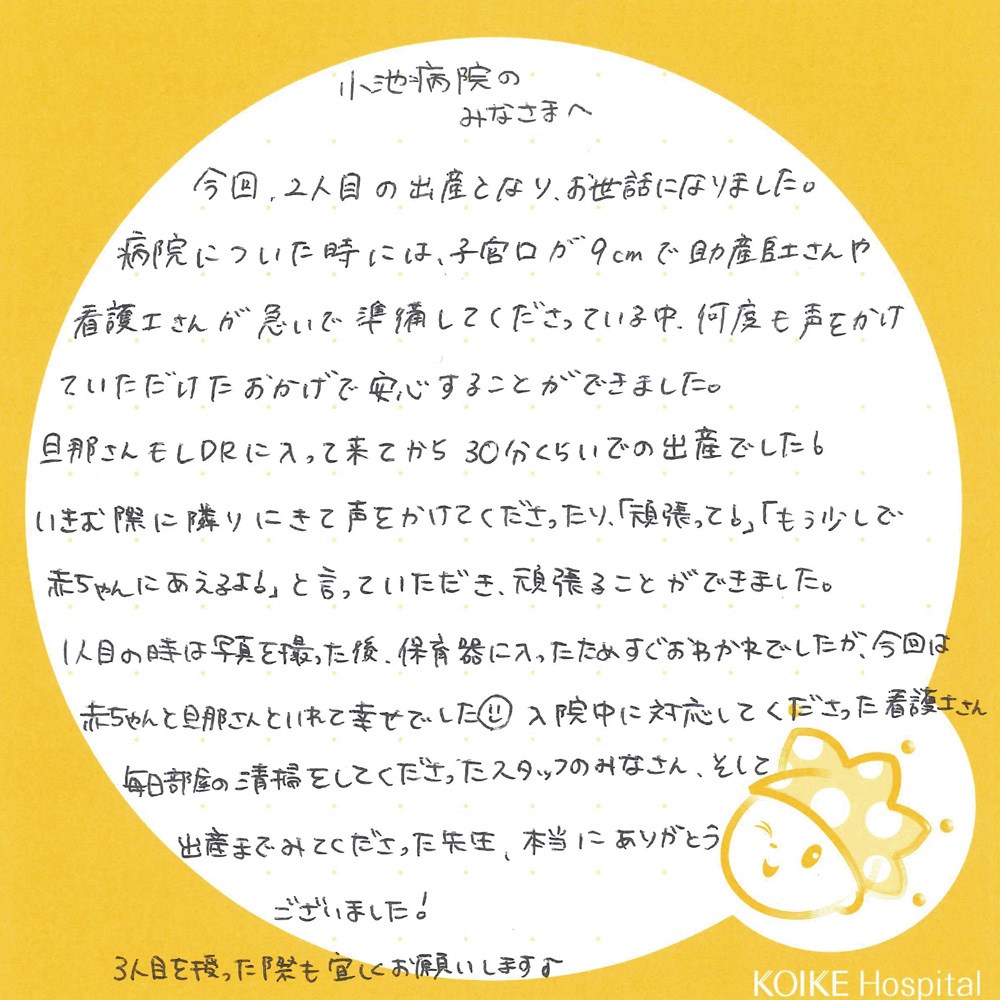 小池病院の
みなさまへ
今回、2人目の出産となり、お世話になりました。
病院についた時には、子宮口が9cmで助産師さんや
看護士さんが急いで準備してくださっている中、何度も声をかけ
ていただけたおかげで安心することができました。
旦那さんもLDRに入って来てから30分くらいでの出産でした!
いきむ際に隣りにきて声をかけてくださったり、「頑張って!」「もう少しで
赤ちゃんにあえるよ!」と言っていただき、頑張ることができました。
1人目の時は写真を撮った後、保育器に入ったためすぐおわかれでしたが、今回は
赤ちゃんと旦那さんといれて幸せでした☺ 入院中に対応してくださった看護士さん
毎日部屋の清掃をしてくださったスタッフのみなさん、そして
出産までみてくださった先生、本当にありがとう
ございました!
3人目を授った際も宜しくお願いします♪
KOIKE Hospital